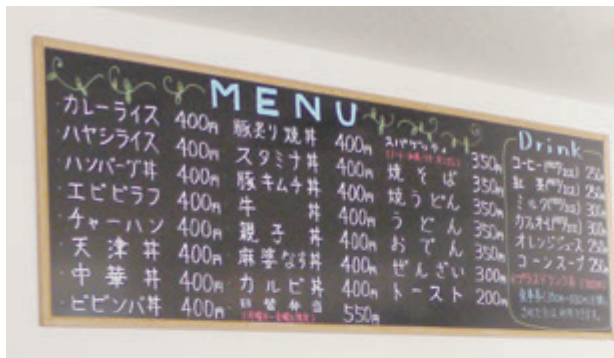 MENU
・カレーライス 400円
・ハヤシライス 400円
・ハンバーグ丼 400円
・エビピラフ 400円
・チャーハン 400円
・天津丼 400円
・中華丼 400円
・ビビンバ丼 400円
豚照り焼丼 400円
スタミナ丼 400円
豚キムチ丼 400円
牛丼 400円
親子丼 400円
麻婆なす丼 400円
カルビ丼 400円
日替弁当 550円
スパゲッティ 350円
焼そば 350円
焼うどん 350円
うどん 350円
おでん 350円
ぜんざい 300円
トースト 200円
Drink
コーヒー 250
紅茶 250
ミルク 250
カフェオレ 300
オレンジジュース 250
コーンスープ 250